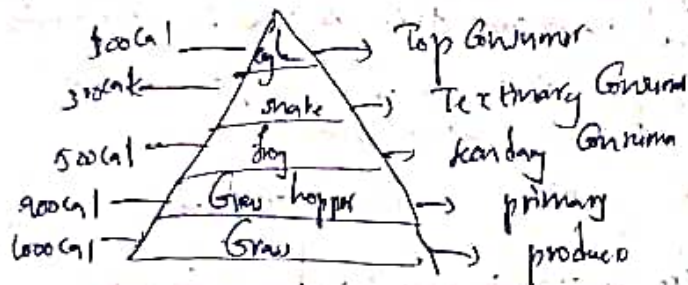 300cal egl Top Consumer
300cal snake Tertinary Consum
500cal frog Scanday Consuma
900cal Grass-hopper primary
1000cal Grass produco